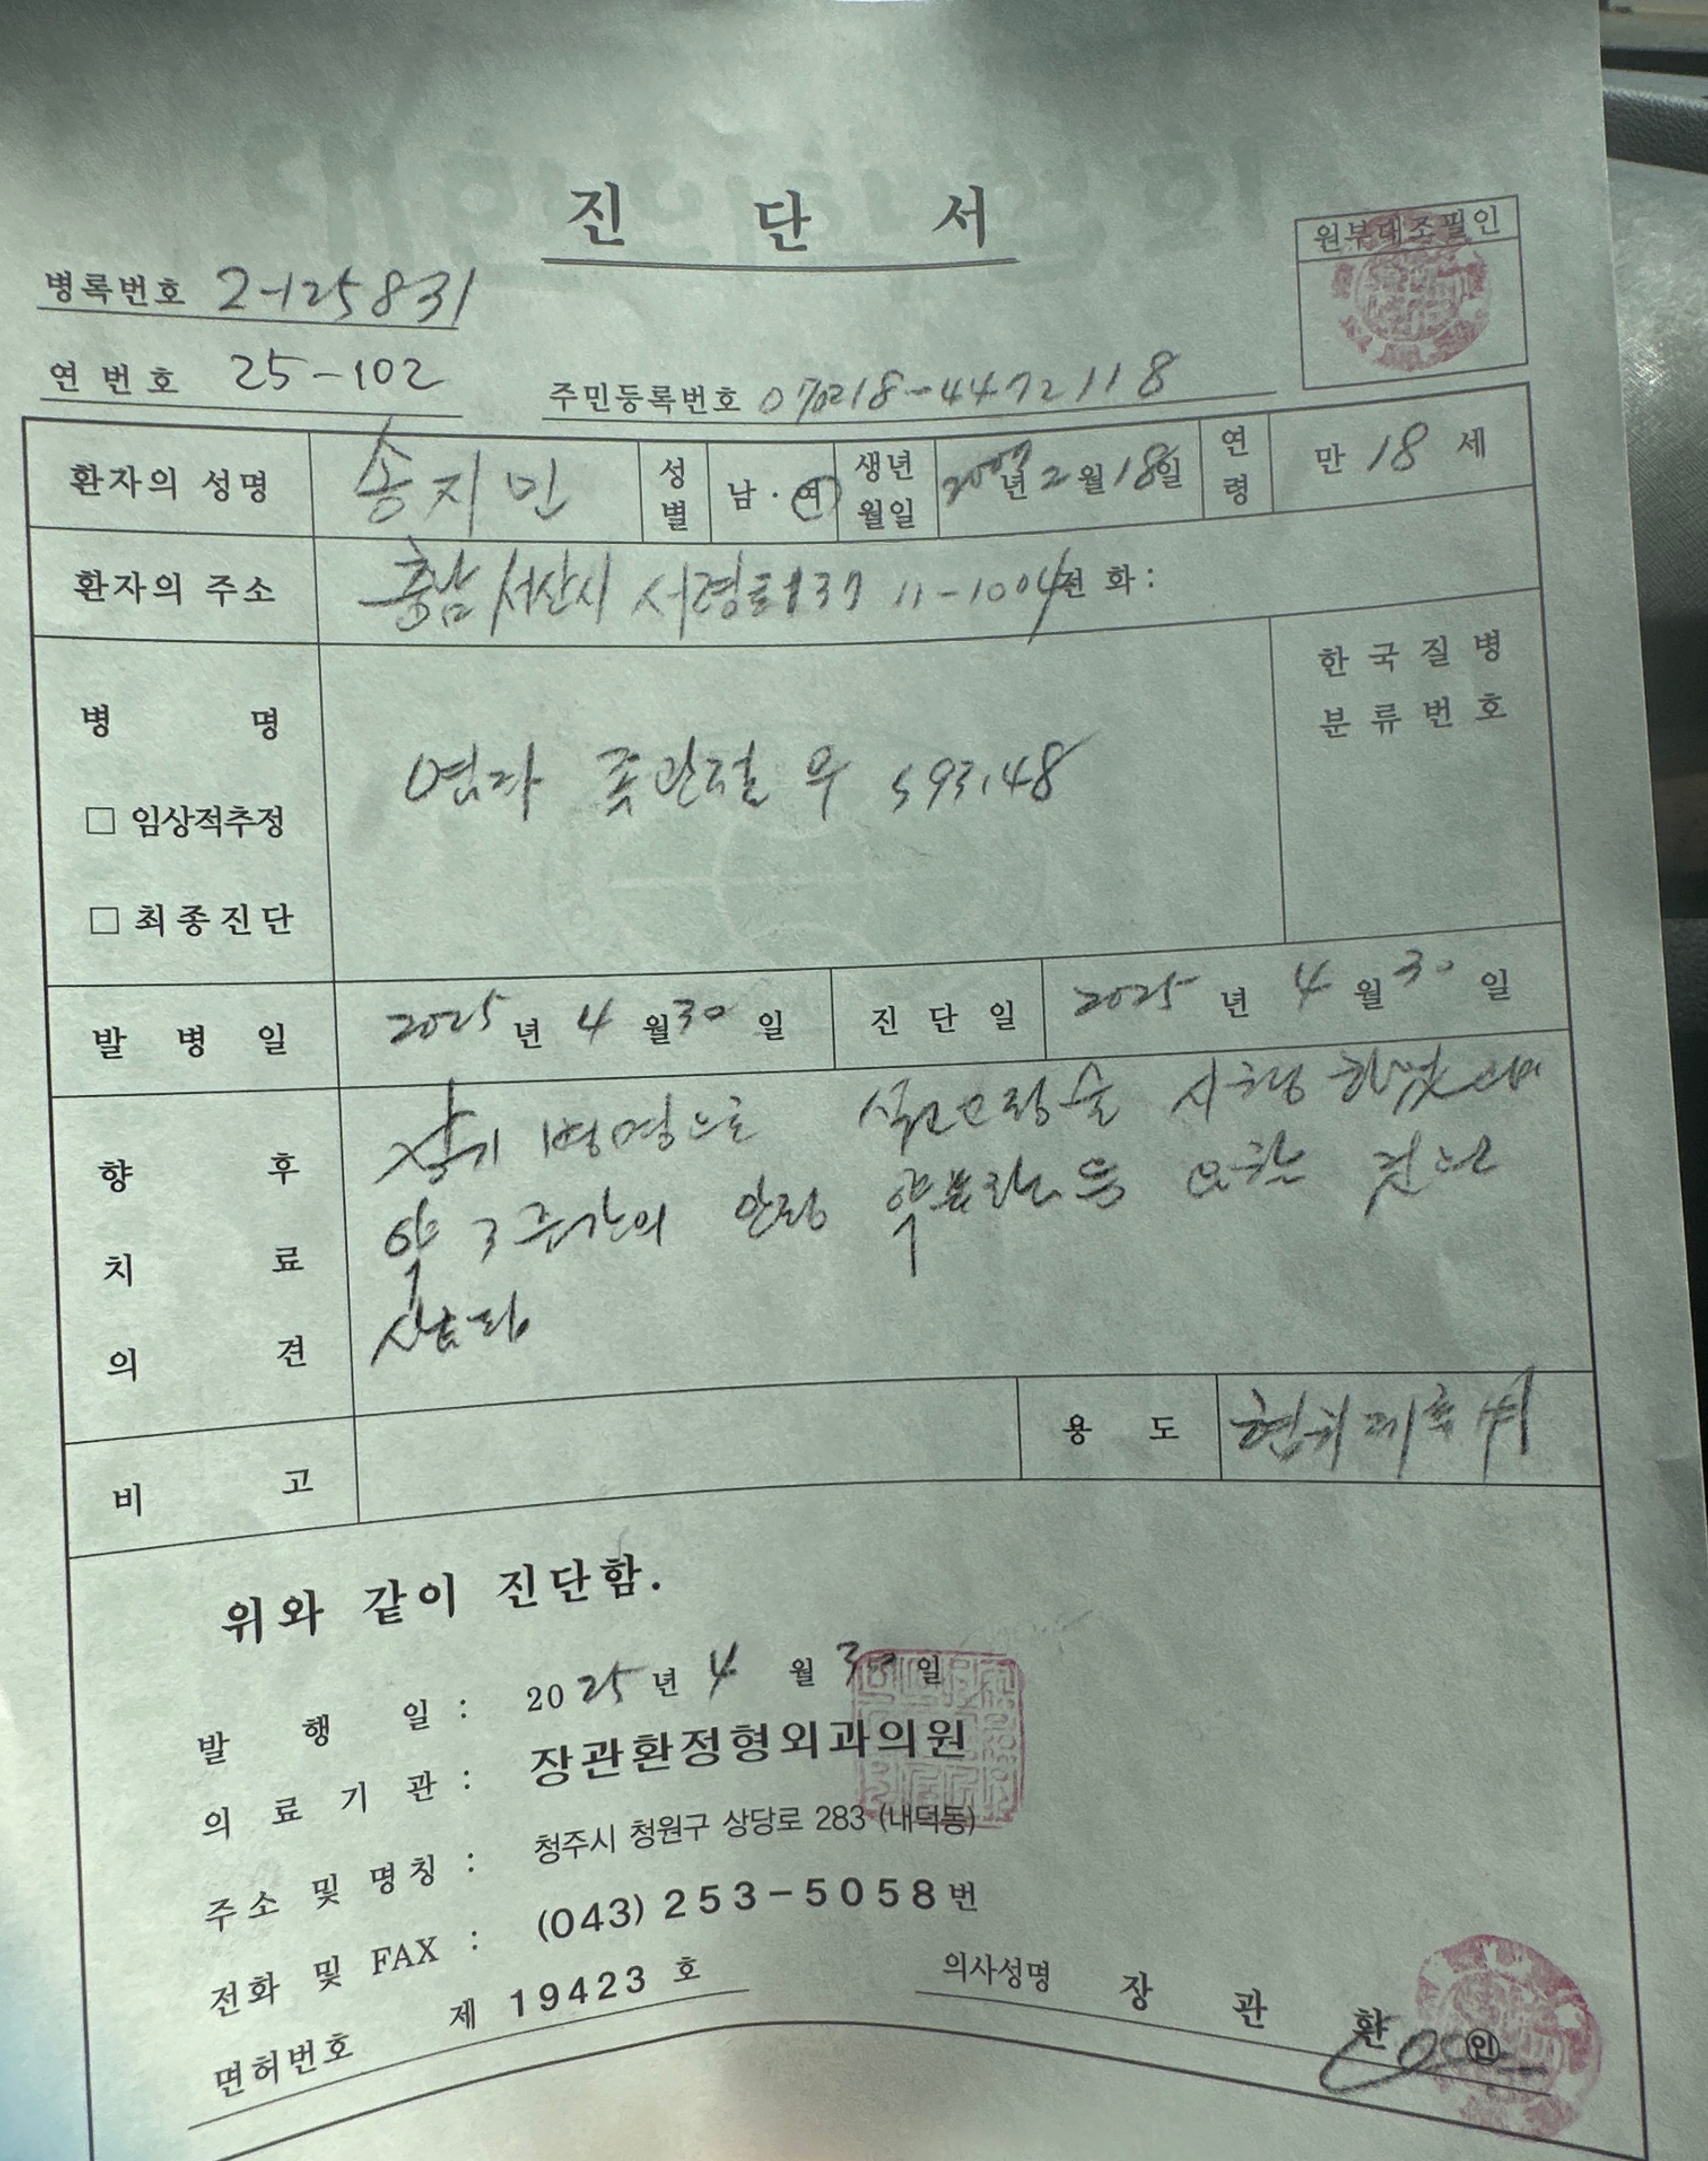 진 단 서
원부대조필인
병록번호 2-125831
연 번 호 25-102
주민등록번호 070218-4472118
환자의 성명 송지민 성별 남·여 생년월일 2007년 2월 18일 연령 만 18 세
환자의 주소 충남 서산시 서령로137 11-1004 전 화 :
병 명
한 국 질 병
분 류 번 호
염좌 족관절 우 S93.48
□ 임상적추정
□ 최 종 진 단
발 병 일 2025 년 4 월 30 일 진 단 일 2025 년 4 월 30 일
향 후 치 료 의 견
상기 병명으로 석고고정술 시행 하였으며
약 3주간의 안정 약물치료 등 요하는 것으로
사료됨
비 고
용 도
위와 같이 진단함.
발 행 일 : 2025 년 4 월 30 일
의 료 기 관 : 장관환정형외과의원
주 소 및 명 칭 : 청주시 청원구 상당로 283 (내덕동)
전화 및 FAX : (043) 253-5058 번
면허번호 제 19423 호 의사성명 장 관 환 ㊞